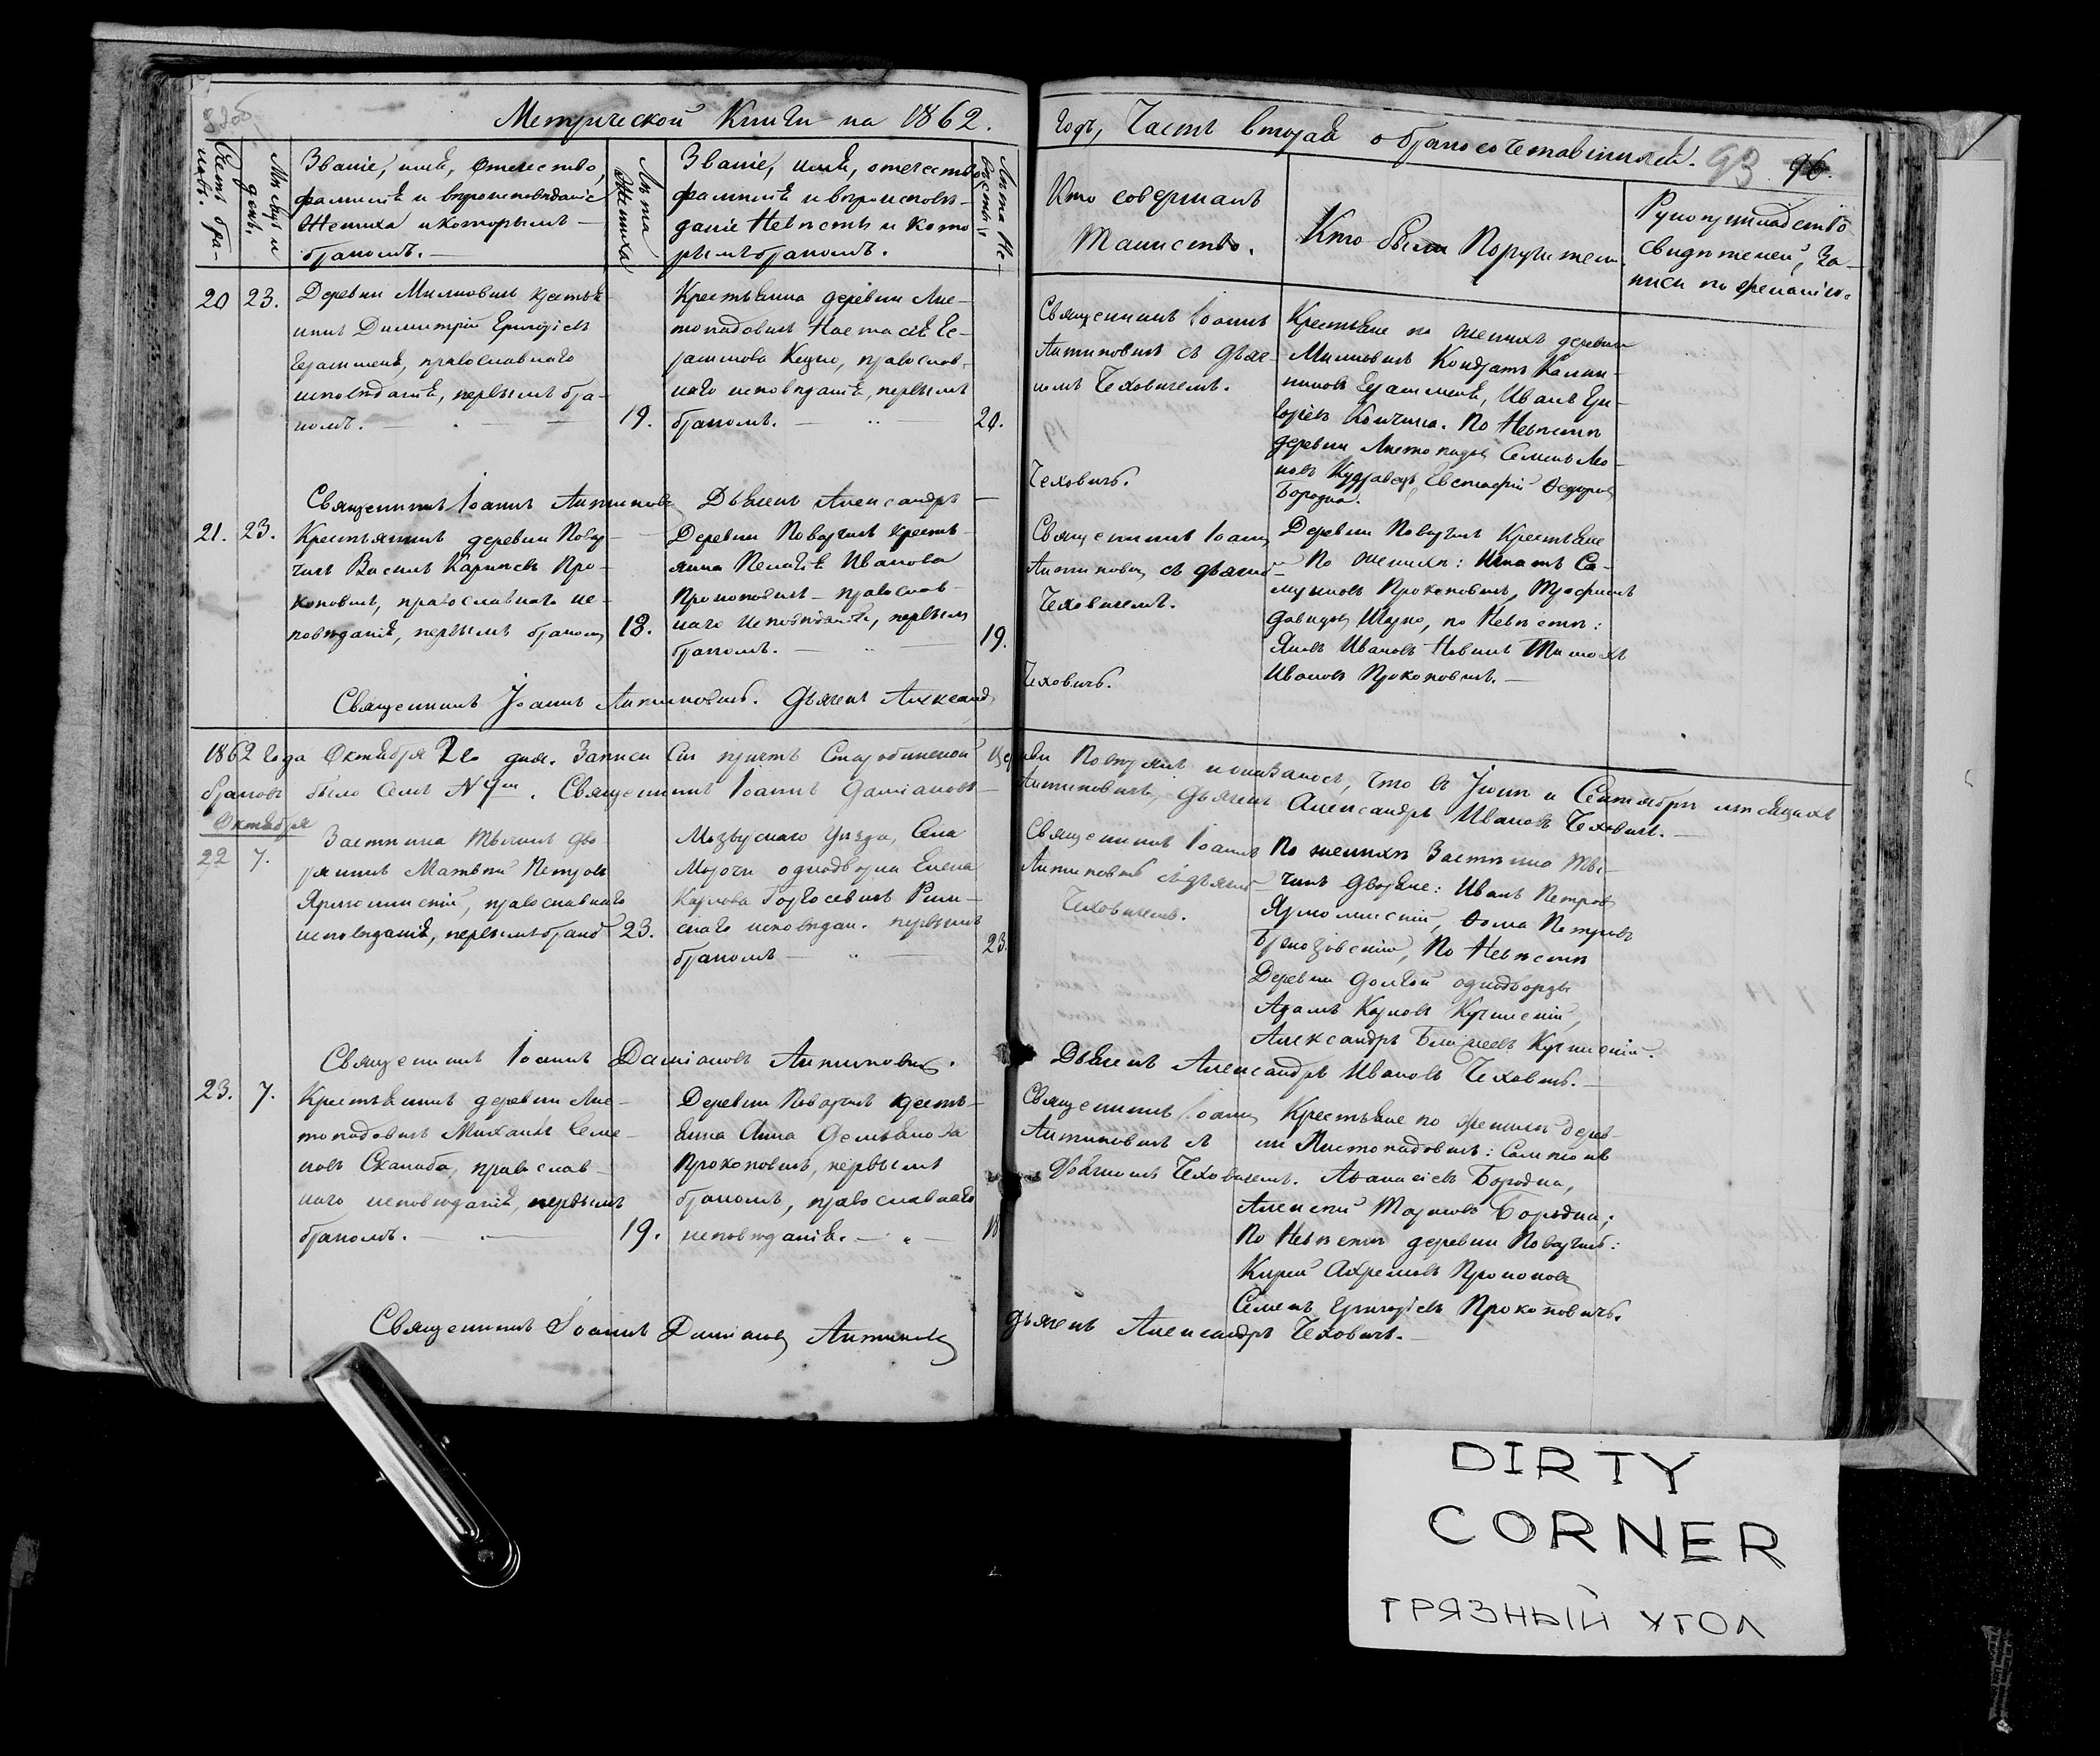 Метрической Книги на 1862.
Годъ, Часть вторая о бракосочетавшихся.
93 96.
Счетъ бра-
ковъ.
Мѣсяцъ и
день.
Званіе, имя, отчество,
фамилія и вѣроисповѣданіе
Жениха и которымъ
бракомъ.
Лѣта
Жениха
Званіе, имя, отечество
фамилія и вѣроисповѣ-
даніе Невѣсты и кото
рымъ бракомъ.
Лѣта Не-
вѣсты
Кто совершалъ
Таинство.
Кто были Поручители
Рукоприкладство
свидѣтелей, За-
писи по желанію.
20 23.
Деревни Милковичъ крестья
нинъ Димитрій Григоріевъ
Герашеня, православнаго
исповѣданія, первымъ бра-
комъ.
19.
Крестьянка деревни Лис-
топадовичъ Настасія Ге-
расимова Кецко, православ-
наго исповѣданія, первымъ
бракомъ.
20.
Священникъ Іоаннъ
Антиповичъ съ дьяч-
комъ Чеховичемъ.
Крестьяне по женихѣ деревни
Милковичъ Кондратъ Калин-
никовъ Герашеня, Иванъ Гри-
горіевъ Кончица. По Невѣстѣ
деревни Листопадов Семенъ Ле-
оновъ Кудравецъ Евстафій Федоров
Бородка.
Священникъ Іоаннъ Антипович Дьячекъ Александръ
Чеховичъ.
21. 23.
Крестьянинъ деревни Повар-
чичъ Василь Карповъ Про-
коповичъ, православнаго ис-
повѣданія, первымъ браком
18.
Деревни Поварчичъ кресть-
янка Пелагія Иванова
Прокоповичъ православ-
наго исповѣданія, первым
бракомъ.
19.
Священникъ Іоанн
Антипович съ дьячко
Чеховичемъ.
Деревни Поварчичъ Крестьяне
По женихѣ: Игнатъ Са-
муиловъ Прокоповичъ, Трофимъ
Давидов Шурко, по Невѣстѣ:
Яковъ Ивановъ Новикъ Тимохъ
Ивановъ Прокоповичъ.
Священникъ Іоаннъ Антиповичъ. Дьячекъ Александ
Чеховичъ.
1862 года Октября 2го дня. Записи Сіи причтъ Старобинской церкви Повѣрялъ и оказалось, что въ Іюли и Сентябри мѣсяцахъ
браковъ было семь № 7м. Священникъ Іоаннъ Даміановъ Антиповичъ, Дьячекъ Александръ Ивановъ Чеховичъ.
Октября
22 7.
Застѣнка Тычинъ дво-
рянинъ Матвѣй Петровъ
Ярмолинскій, православнаго
исповѣданія, первымъ брако
23.
Мозырскаго уѣзда, Села
Морочи однодворка Елена
Карлова Рим-
скаго исповѣдан. первымъ
бракомъ
23.
Священникъ Іоаннъ
Антиповичъ съ дьячко
Чеховичемъ.
По женихѣ Застѣнка Ты-
чинъ Дворяне: Иванъ Петров
Ярмолинскій, Фома Петровъ
Бржозовскій, По Невѣстѣ
Деревни Долгой однодворцы
Адамъ Карловъ Кучинскій,
Александръ Кучинскій.
Священникъ Іоаннъ Даміановъ Антипович.
Дьячекъ Александръ Ивановъ Чеховичъ.
23. 7.
Крестьянинъ деревни Лис-
топадовичъ Михаилъ Семе-
новъ Скалаба, православ-
наго исповѣданія, первымъ
бракомъ.
19.
Деревни Поварчичъ кресть-
янка Анна Демьянова
Прокоповичъ, первымъ
бракомъ, православнаго
исповѣданія.
18
Священникъ Іоанн
Антиповичъ съ
дьячкомъ Чеховичемъ.
Крестьяне по женихѣ дерев-
ни Листопадовичъ:
Афанасіевъ Бородка,
Алексѣй Марковъ Бородка;
По Невѣстѣ деревни Поварчичъ:
Кирей Прокопов
Семенъ Григорьевъ Прокоповичъ.
Священникъ Іоаннъ Даміанов Антипович
Дьячекъ Александръ Чеховичъ.
DIRTY
CORNER
ГРЯЗНЫЙ УГОЛ